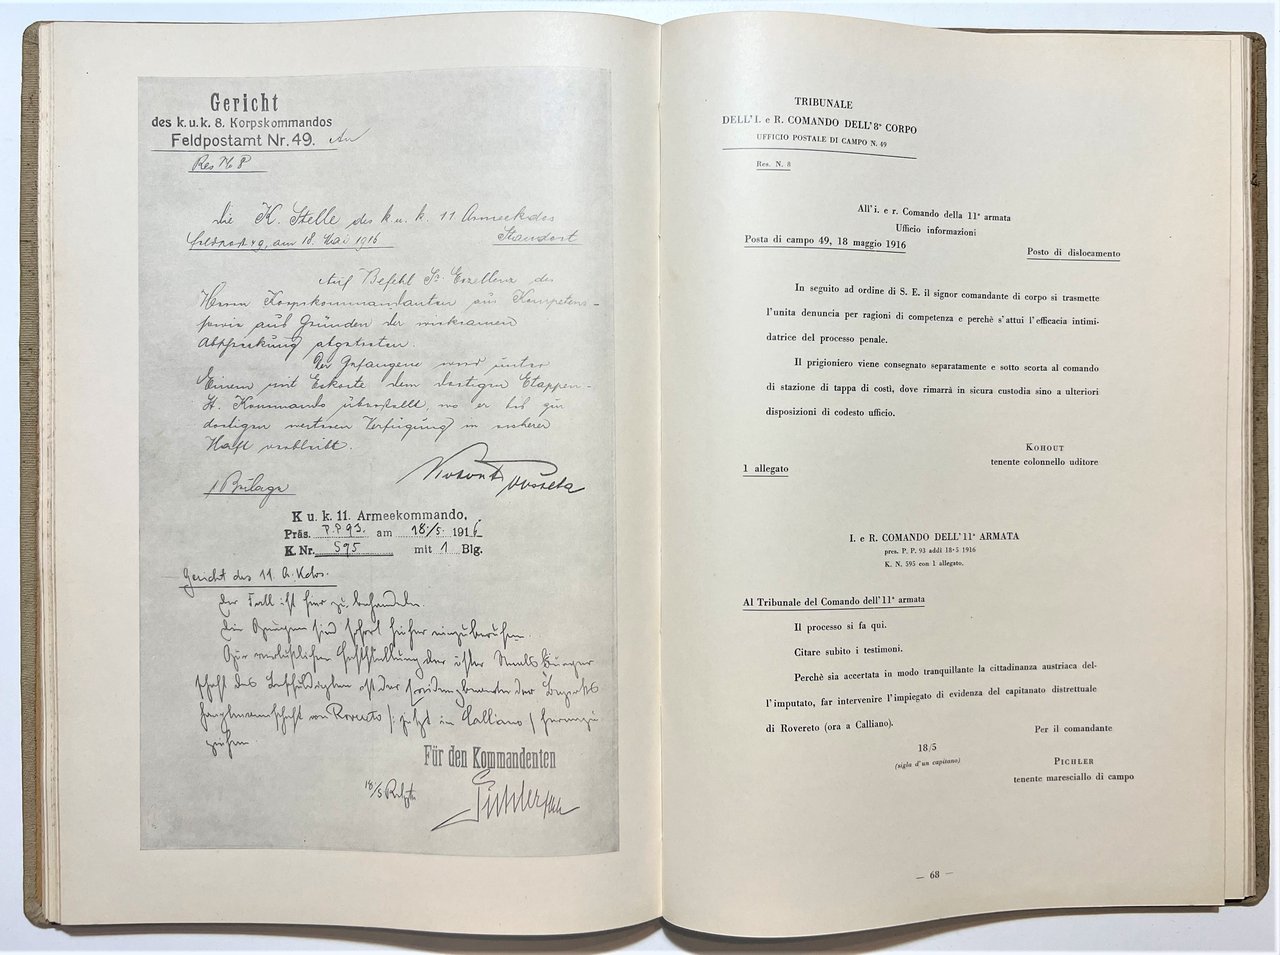 Gericht
des k. u. k. 8. Korpskommandos
Feldpostamt Nr. 49. An
Res № 8
Die K. Stelle des k. u. k. 11 Armeekdos
Feldpost 49, am 18. Mai 1916 Standort
Auf Befehl Sr Exzellenz des
Herrn Korpskommandanten aus Kompetenz-
sowie aus Gründen der wirksamen
abgetreten.
Der Gefangene wird unter
Einem mit Eskorte dem dortigen Etappen-
St. Kommando überstellt, wo er bis zur
dortigen weiteren Verfügung in sicherer
Haft verbleibt.
1 Beilage
K. u. k. 11. Armeekommando,
Präs. P.P 93. am 18./5. 1916
K. Nr. 595 mit 1 Blg.
Gericht des 11. A. Kdos.
Der Fall ist hier zu behandeln.
Die Zeugen sind sofort hieher einzuberufen.
Zur verlässlichen Feststellung der österr Staatsbürger
schaft des Beschuldigten ist der der Bezirks
hauptmannschaft von Rovereto /: jetzt in Calliano / heranzu
ziehen
Für den Kommandanten
18/5
Pichler
TRIBUNALE
DELL'I. e R. COMANDO DELL'8° CORPO
UFFICIO POSTALE DI CAMPO N. 49
Res. N. 8
All'i. e r. Comando della 11ª armata
Ufficio informazioni
Posta di campo 49, 18 maggio 1916 Posto di dislocamento
In seguito ad ordine di S. E. il signor comandante di corpo si trasmette
l'unita denuncia per ragioni di competenza e perchè s'attui l'efficacia intimi-
datrice del processo penale.
Il prigioniero viene consegnato separatamente e sotto scorta al comando
di stazione di tappa di costì, dove rimarrà in sicura custodia sino a ulteriori
disposizioni di codesto ufficio.
KOHOUT
tenente colonnello uditore
1 allegato
I. e R. COMANDO DELL'11ª ARMATA
pres. P. P. 93 addì 18-5 1916
K. N. 595 con 1 allegato.
Al Tribunale del Comando dell'11ª armata
Il processo si fa qui.
Citare subito i testimoni.
Perchè sia accertata in modo tranquillante la cittadinanza austriaca del-
l'imputato, far intervenire l'impiegato di evidenza del capitanato distrettuale
di Rovereto (ora a Calliano).
Per il comandante
18/5
(sigla d'un capitano)
PICHLER
tenente maresciallo di campo
— 68 —